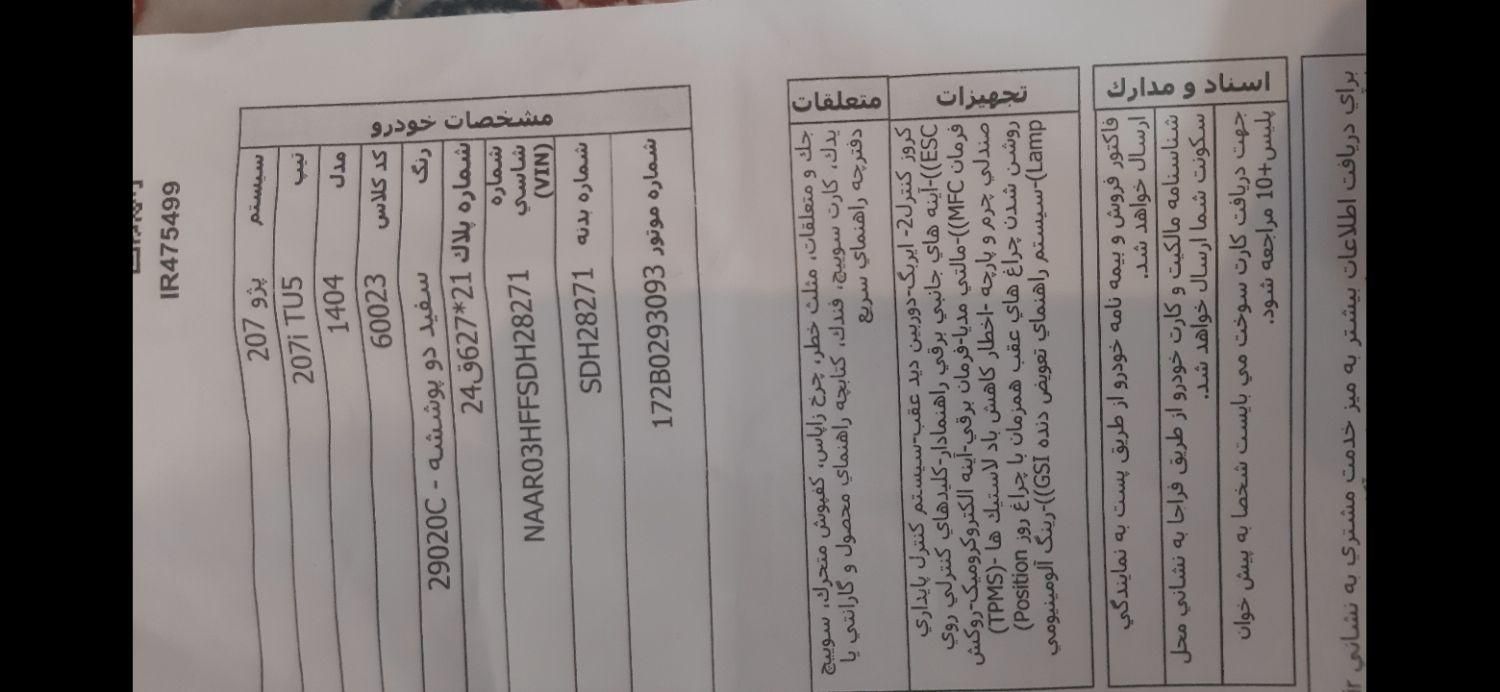 IR475499
مشخصات خودرو
سیستم پژو 207
تیپ 207i TU5
مدل 1404
کد کلاس 60023
رنگ سفید دو پوششه - 29020C
شماره پلاک 21*627ق24
شماره شاسي (VIN) NAAR03HFFSDH28271
شماره بدنه SDH28271
شماره موتور 172B0293093
متعلقات
جك و متعلقات، مثلث خطر، چرخ زاپاس، کفپوش متحرك، سوييچ
يدك، كارت سوييچ، فندك، كتابچه راهنماي محصول و گارانتي يا
دفترچه راهنماي سريع
تجهیزات
كروز كنترل-2 ايربگ-دوربين ديد عقب-سيستم كنترل پايداري
(ESC)-آينه هاي جانبي برقي راهنمادار-كليدهاي كنترلي روي
فرمان (MFC)-مالتي مديا-فرمان برقي-آينه الكتروكروميك-روكش
صندلي چرم و پارچه -اخطار كاهش باد لاستيك ها -(TPMS)
روشن شدن چراغ هاي عقب همزمان با چراغ روز (Position
Lamp)-سيستم راهنماي تعويض دنده (GSI)-رينگ آلومينيومي
اسناد و مدارك
فاكتور فروش و بيمه نامه خودرو از طريق پست به نمايندگي
ارسال خواهد شد.
شناسنامه مالكيت و كارت خودرو از طريق فراجا به نشاني محل
سكونت شما ارسال خواهد شد.
جهت دريافت كارت سوخت مي بايست شخصا به پيش خوان
پليس+10 مراجعه شود.
براي دريافت اطلاعات بيشتر به ميز خدمت مشتري به نشاني